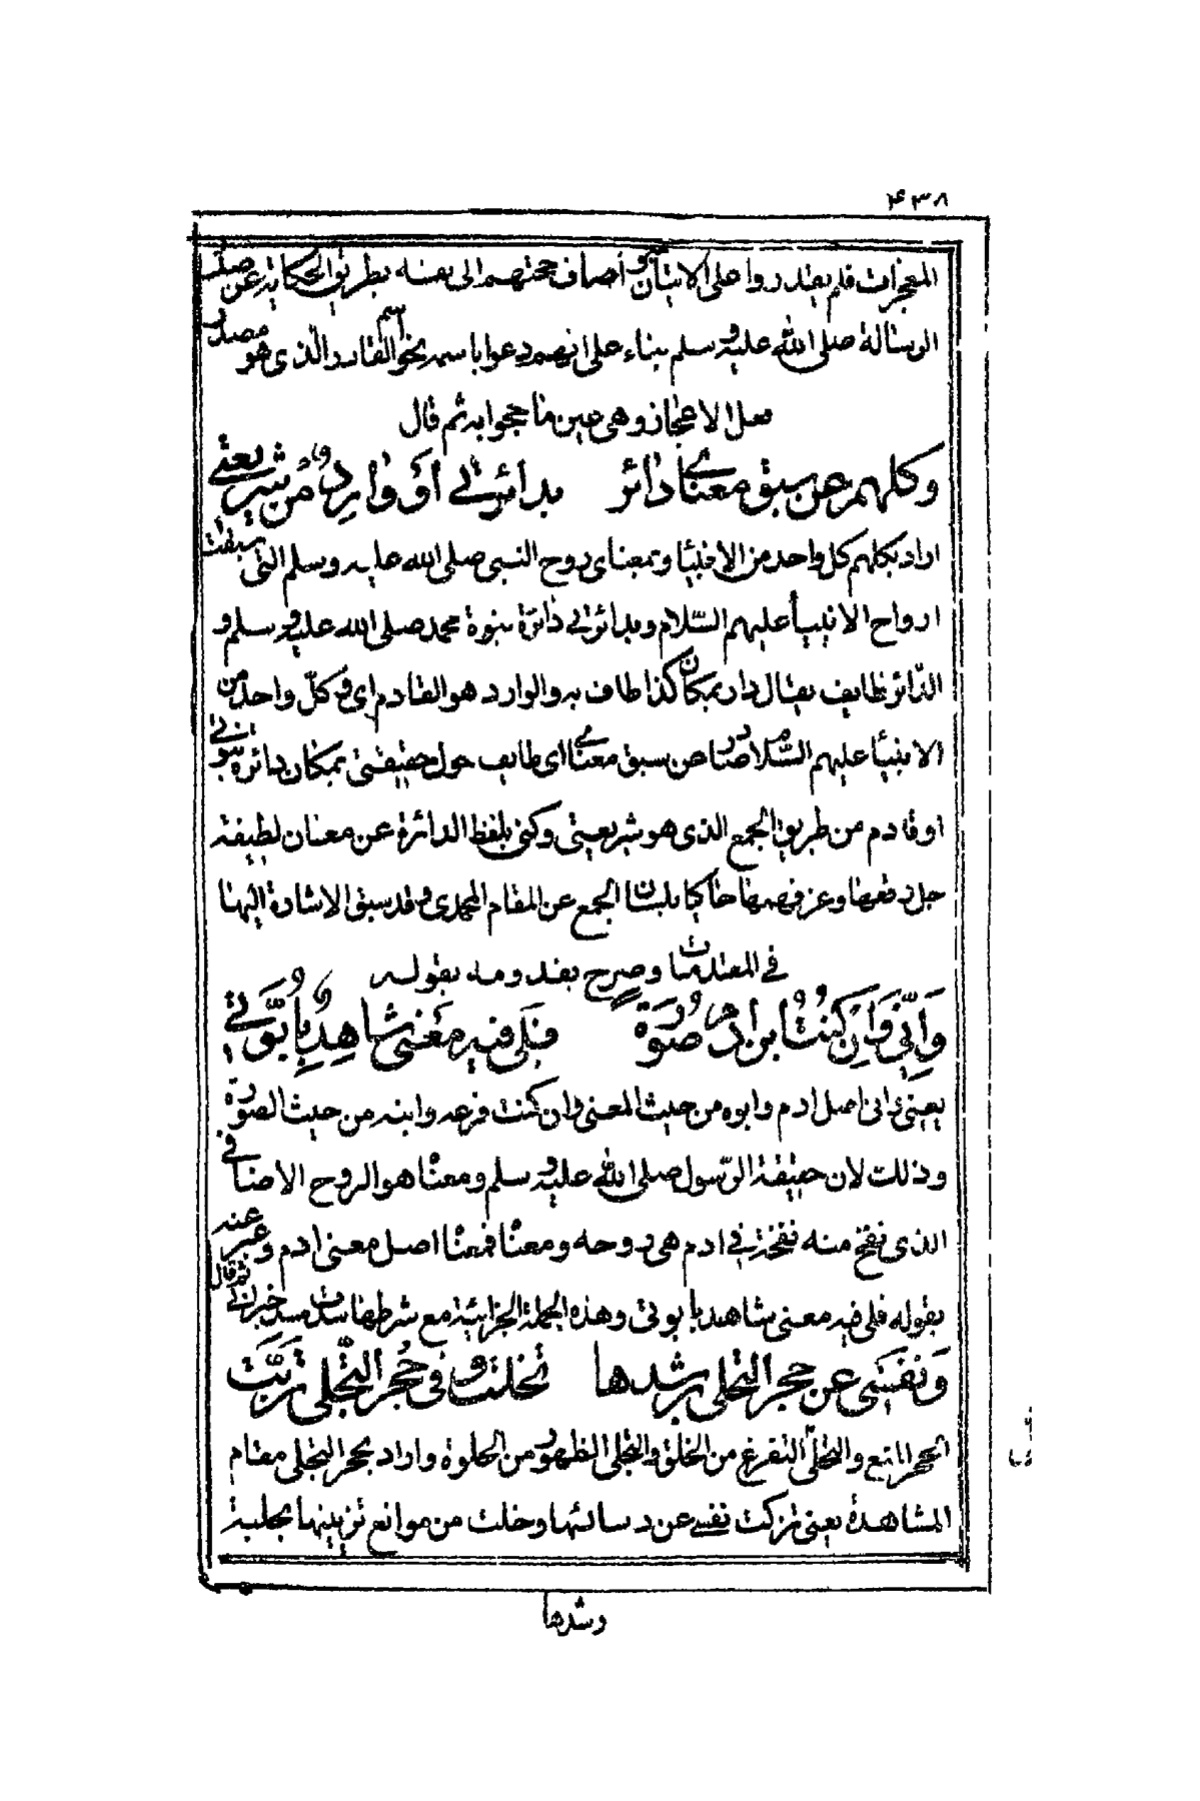 ۴۳۸
المعجزات فلم يقدروا على الاتيان و أضاف حجتهم الى نفسه بطريق الحكاية عن صاحب
الرسالة صلى الله عليه و سلم بناء على انهم دعوا باسم نحو القادر الذى هو مصدر
الاعجاز وهى عين ما حجوا به ثم قال
وكلهم عن سبق معناى دائر بدائرتى أو وارد من شريعتى
اراد بكلهم كل واحد من الانبيا وبمعناى روح النبى صلى الله عليه وسلم التى سبقت
ارواح الانبيا عليهم السّلام وبدائرتى دائرة نبوة محمد صلى الله عليه و سلم و
الدّائر طايف يقال دار بمكان كذا طاف به والوارد هو القادم اى وكلّ واحد من
الانبيا عليهم السّلام صادر عن سبق معناى اى طايف حول حقيقتى بمكان دائرة نبوتى
او قادم من طريق الجمع الذى هو شريعتى وكنى بلفظ الدائرة عن معان لطيفة
جل دفعها وعز فهمها حاكيا بلسان الجمع عن المقام المحمدى وقد سبق الاشارة اليها
فى المقدمات وصرح بقدومه بقوله
وَانّى وَاِن كنتُ ابن ادم صُورَة فلى فيه معنى شاهد بابوّتى
يعنى انى اصل ادم وابوه من حيث المعنى وان كنت فرعه وابنه من حيث الصورة
وذلك لان حقيقة الرّسول صلى الله عليه و سلم ومعناها هو الروح الاضافى
الذى نفخ منه نفخة فى ادم هى روحه ومعناه فمعناه اصل معنى ادم وعبر عنه
بقوله فلى فيه معنى شاهد بابوتى وهذه الجملة الجزائية مع شرطها سدت مسد خبر انى ثم قال
وَنفسى عن حجر التخلى برشدها تخلت وفى حُجر التّجلى تربّت
الحجر المنع والتخلّى التفرغ من الخلق والتجلى الظهور من الجلوة واراد بحجر التجلى مقام
المشاهدة يعنى تزكت نفسى عن رسالتها وخلت من موانع تزيينها بجلية
رشدها